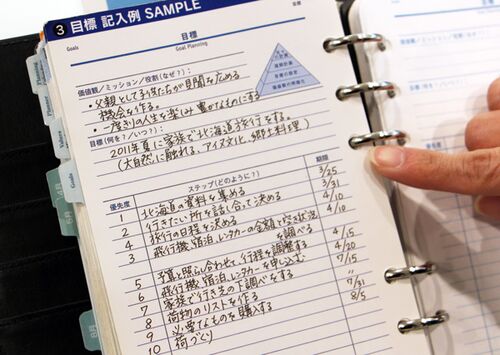 3 目標 記入例 SAMPLE
Goals
目標
Goal Planning
価値観/ミッション/役割(なぜ?):
・父親として子供たちが見聞を広める
機会を作る。
・一度きりの人生を楽しみ豊かなものにする
目標(何を?/いつ?):
2011年夏に家族で北海道旅行をする。
(大自然に触れる、アイヌ文化、郷土料理)
優先度
ステップ(どのように?)
期間
1 北海道の資料を集める 3/25
2 行きたい所を話し合って決める 3/31
3 旅行の日程を決める 4/10
4 飛行機、宿泊、レンタカーの金額や空き状況を調べる 4/10
5 予算と照らし合わせて行程を調整する 4/15
6 飛行機、宿泊、レンタカーを申し込む 4/20
7 家族で行き先の下調べをする 7/15
8 荷物のリストを作る 〃
9 必要なものを購入する 7/31
10 荷づくり 8/5
Planner
Values
Goals
6月
8月